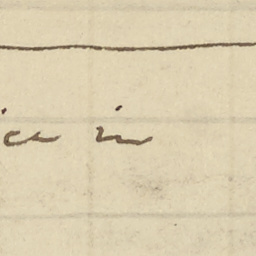 ice in